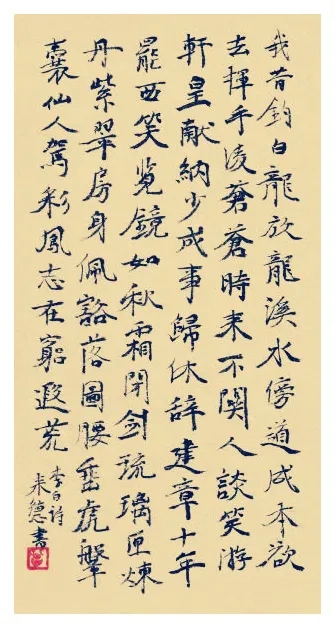 我昔釣白龍放龍溪水傍道成本欲
去揮手凌蒼蒼時来不関人談笑游
軒皇献納少成事歸休辞建章十年
罷西笑览鏡如秋霜閉剑琉璃匣煉
丹紫翠房身佩豁落圖腰垂虎鞶
囊仙人駕彩鳳志在窮遐荒
李白詩
書